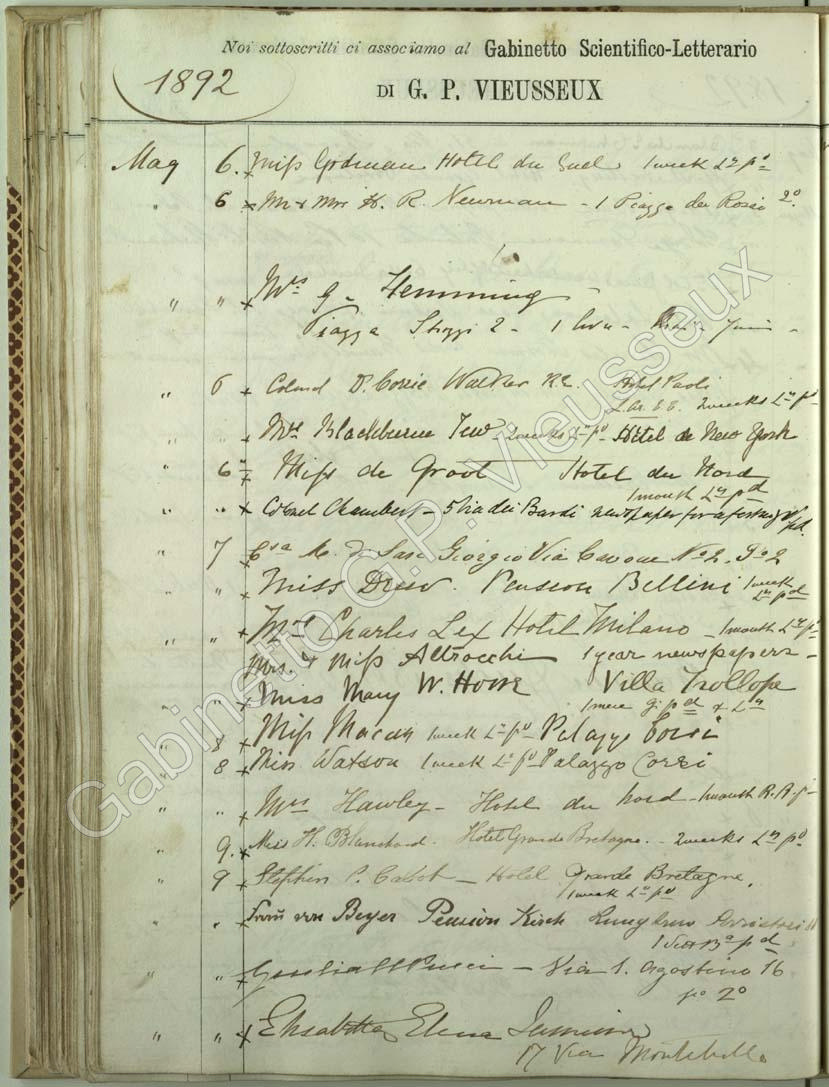 Noi sottoscritti ci associamo al Gabinetto Scientifico-Letterario
1892
DI G. P. VIEUSSEUX
Mag 6. x Miss Godman Hotel du Sud 1 week Ln pd
" 6 x Mr & Mrs H. R. Newman - 1 Piazza dei Rossi 2o.
" " x Mrs G. Hemming
Piazza Strozzi 2 -
" 6 x Colonel Walker R.E. Hotel Paoli
2 weeks Ln pd
" " x Mrs Blackburne Tew 2 weeks Ln pd Hotel de New York
" 6 x Miss de Groot Hotel du Nord
1 month Ln pd
" " x Colonel Chambers - 5 Via dei Bardi newspaper for a fortnight pd.
" 7 x San Giorgio Via Cavour No 2. Po 2
x Miss Drew. Pension Bellini 1 week
Ln pd
" " x Mrs Charles Lex Hotel Milano - 1 month Ln pd
Mrs. & Miss Altrocchi 1 year newspapers -
" " x Miss Mary W. Howe Villa Trollope
1 mese g. pd & Ln
" 8 x Miss Macan 1 week Ln pd Palazzo Corsi
" 8 x Miss Watson 1 week Ln pd Palazzo Corsi
" " x Mrs Hawley - Hotel du Nord - 1 month R. R.
" 9. x Miss H. Blanchard. Hotel Grande Bretagne. - 2 weeks Ln pd
" 9 x Stephen P. Cabot - Hotel Grande Bretagne.
1 week Ln pd
" " x von Beyer Pension Kirch Lungarno
pd
" " x Pucci - Via S. Agostino 16
po 2o
" " x Elisabetta Elena
17 Via Montebello
Gabinetto G.P. Vieusseux